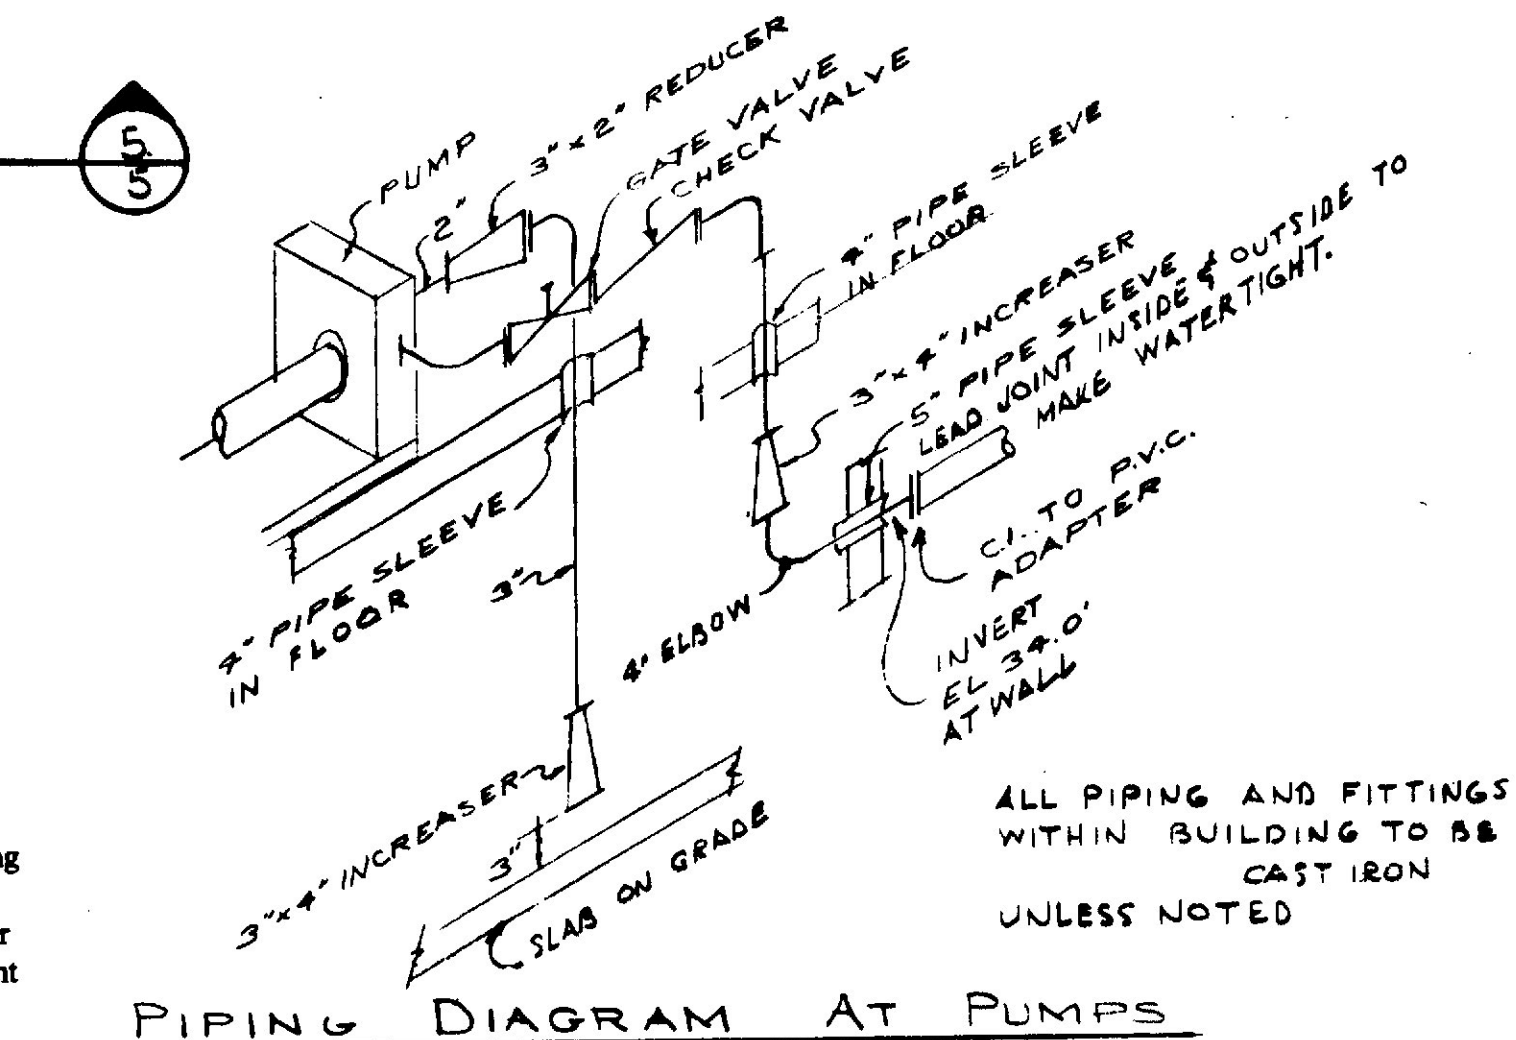 5
5
PUMP
2"
3" x 2" REDUCER
GATE VALVE
CHECK VALVE
4" PIPE SLEEVE
IN FLOOR
3" x 4" INCREASER
5" PIPE SLEEVE
LEAD JOINT INSIDE & OUTSIDE TO
MAKE WATERTIGHT.
C.I. TO P.V.C.
ADAPTER
INVERT
EL 34.0'
AT WALL
4" ELBOW
4" PIPE SLEEVE
IN FLOOR
3"
3" x 4" INCREASER
3"
SLAB ON GRADE
ALL PIPING AND FITTINGS
WITHIN BUILDING TO BE
CAST IRON
UNLESS NOTED
PIPING DIAGRAM AT PUMPS